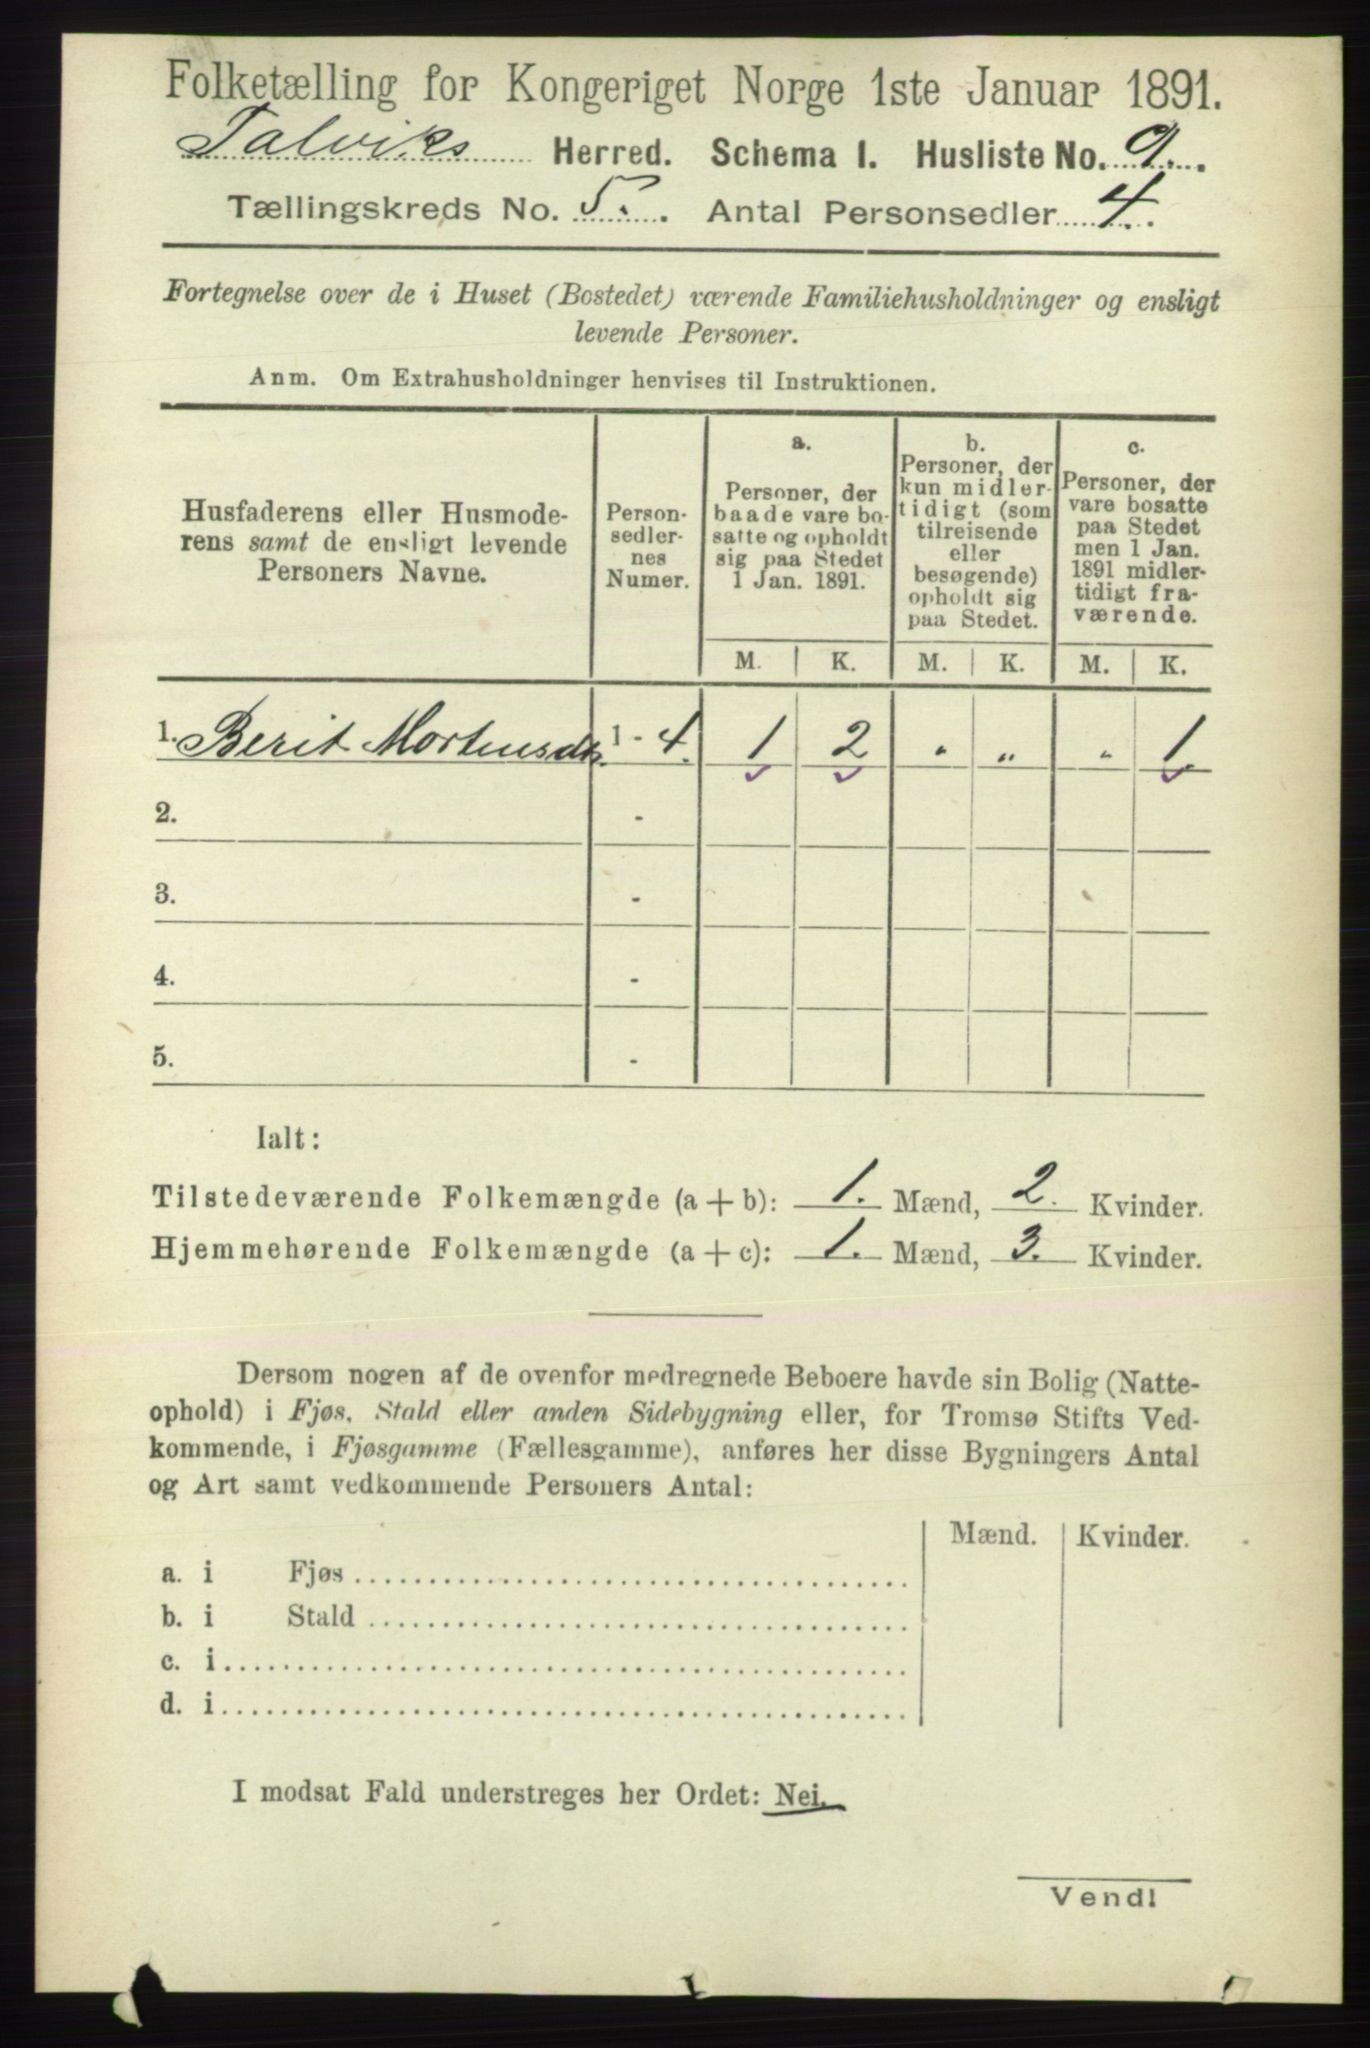 Folketælling for Kongeriget Norge 1ste Januar 1891.
Talviks Herred. Schema 1. Husliste No. 9.
Tællingskreds No. 5. Antal Personsedler 4.
Fortegnelse over de i Huset (Bostedet) værende Familiehusholdninger og ensligt
levende Personer.
Anm. Om Extrahusholdninger henvises til Instruktionen.
Husfaderens eller Husmode-
rens samt de ensligt levende
Personers Navne.
Person-
sedler-
nes
Numer.
a.
Personer, der
baade vare bo-
satte og opholdt
sig paa Stedet
1 Jan. 1891.
b.
Personer, der
kun midler-
tidigt (som
tilreisende
eller
besøgende)
opholdt sig
paa Stedet.
c.
Personer, der
vare bosatte
paa Stedet
men 1 Jan.
1891 midler-
tidigt fra-
værende.
M. K. M. K. M. K.
1. Berit Mortensdtr. 1 - 4. 1 2 " " " 1.
2. -
3. -
4. -
5. -
Ialt:
Tilstedeværende Folkemængde (a + b): 1. Mænd, 2. Kvinder.
Hjemmehørende Folkemængde (a + c): 1. Mænd, 3. Kvinder.
Dersom nogen af de ovenfor medregnede Beboere havde sin Bolig (Natte-
ophold) i Fjøs, Stald eller anden Sidebygning eller, for Tromsø Stifts Ved-
kommende, i Fjøsgamme (Fællesgamme), anføres her disse Bygningers Antal
og Art samt vedkommende Personers Antal:
Mænd. Kvinder.
a. i Fjøs
b. i Stald
c. i
d. i
I modsat Fald understreges her Ordet: Nei.
Vend!